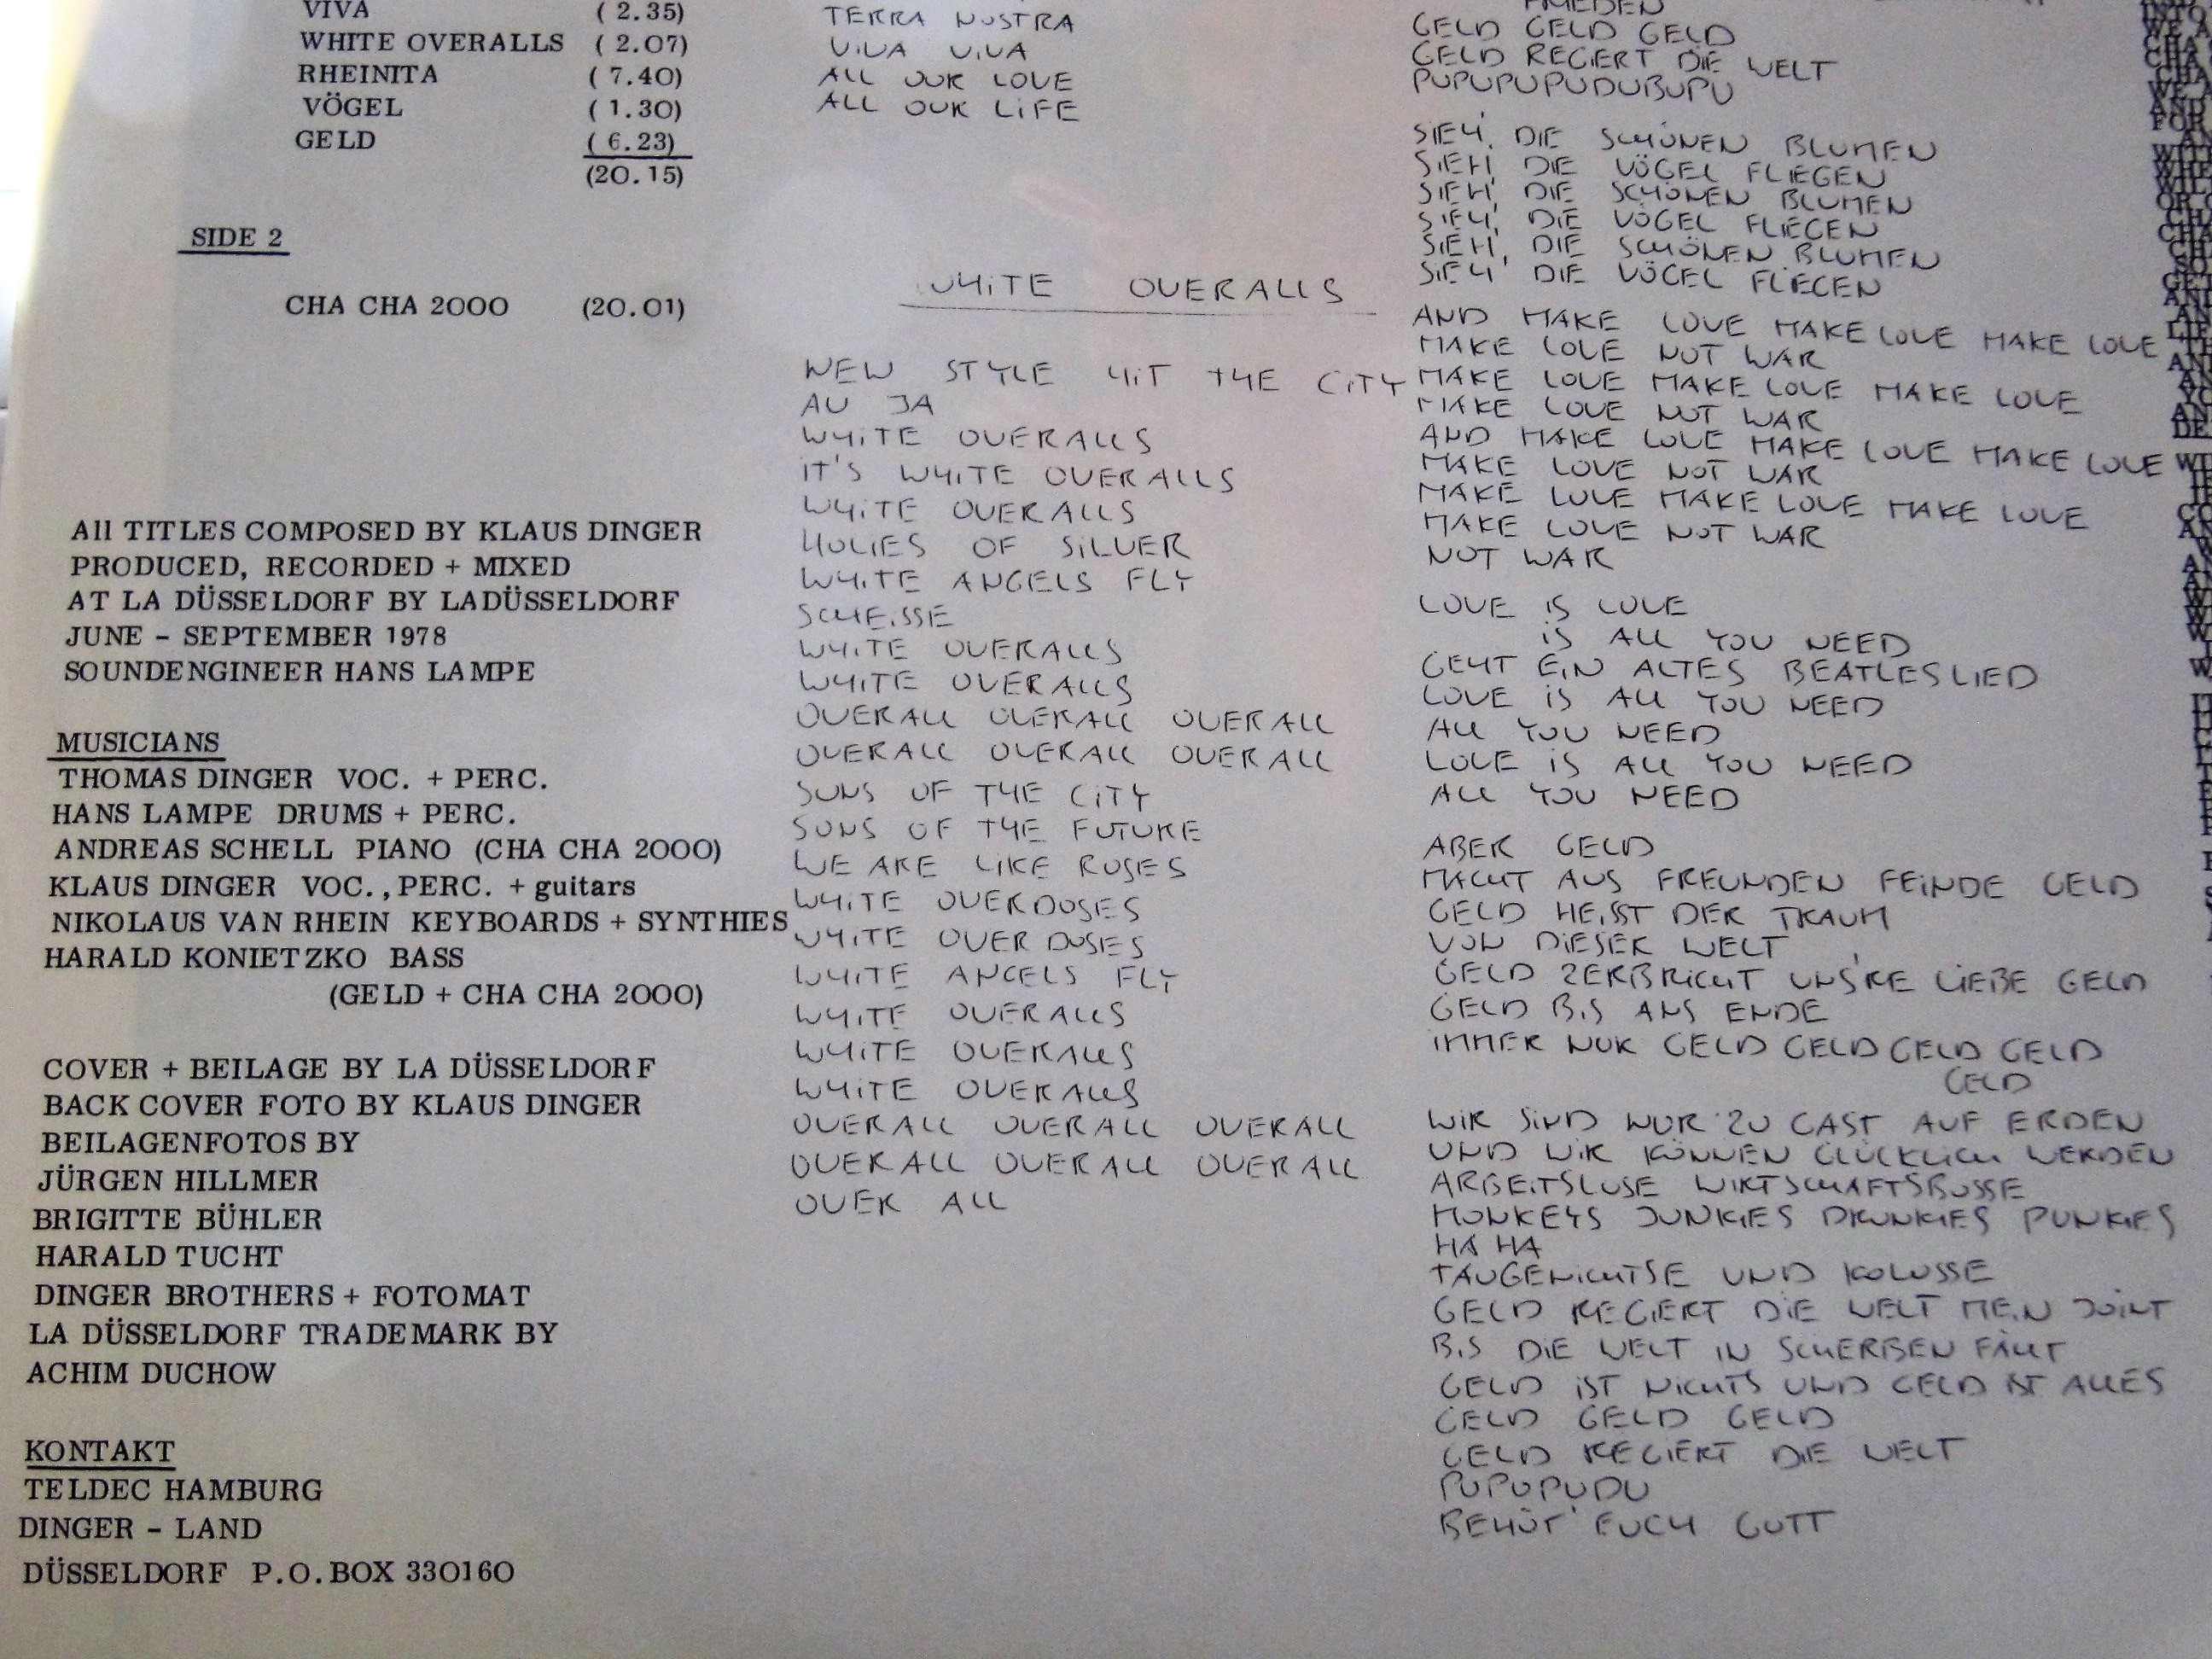 VIVA (2.35)
WHITE OVERALLS (2.07)
RHEINITA (7.40)
VÖGEL (1.30)
GELD (6.23)
(20.15)
SIDE 2
CHA CHA 2000 (20.01)
All TITLES COMPOSED BY KLAUS DINGER
PRODUCED, RECORDED + MIXED
AT LA DÜSSELDORF BY LADÜSSELDORF
JUNE - SEPTEMBER 1978
SOUNDENGINEER HANS LAMPE
MUSICIANS
THOMAS DINGER VOC. + PERC.
HANS LAMPE DRUMS + PERC.
ANDREAS SCHELL PIANO (CHA CHA 2000)
KLAUS DINGER VOC., PERC. + guitars
NIKOLAUS VAN RHEIN KEYBOARDS + SYNTHIES
HARALD KONIETZKO BASS
(GELD + CHA CHA 2000)
COVER + BEILAGE BY LA DÜSSELDORF
BACK COVER FOTO BY KLAUS DINGER
BEILAGENFOTOS BY
JÜRGEN HILLMER
BRIGITTE BÜHLER
HARALD TUCHT
DINGER BROTHERS + FOTOMAT
LA DÜSSELDORF TRADEMARK BY
ACHIM DUCHOW
KONTAKT
TELDEC HAMBURG
DINGER - LAND
DÜSSELDORF P.O.BOX 330160
TERRA NOSTRA
VIVA VIVA
ALL OUR LOVE
ALL OUR LIFE
WHITE OVERALLS
NEW STYLE HIT THE CITY
AU JA
WHITE OVERALLS
IT'S WHITE OVERALLS
WHITE OVERALLS
HOLIES OF SILVER
WHITE ANGELS FLY
SCHEISSE
WHITE OVERALLS
WHITE OVERALLS
OVERALL OVERALL OVERALL
OVERALL OVERALL OVERALL
SONS OF THE CITY
SONS OF THE FUTURE
WE ARE LIKE ROSES
WHITE OVERDOSES
WHITE OVER DOSES
WHITE ANGELS FLY
WHITE OVERALLS
WHITE OVERALLS
WHITE OVERALLS
OVERALL OVERALL OVERALL
OVERALL OVERALL OVERALL
OVER ALL
FRIEDEN
GELD GELD GELD
GELD REGIERT DIE WELT
PUPUPUPUDUBUPU
SIEH' DIE SCHÖNEN BLUMEN
SIEH' DIE VÖGEL FLIEGEN
SIEH' DIE SCHÖNEN BLUMEN
SIEH' DIE VÖGEL FLIEGEN
SIEH' DIE SCHÖNEN BLUMEN
SIEH' DIE VÖGEL FLIEGEN
AND MAKE LOVE MAKE LOVE MAKE LOVE
MAKE LOVE NOT WAR
MAKE LOVE MAKE LOVE MAKE LOVE
MAKE LOVE NOT WAR
AND MAKE LOVE MAKE LOVE MAKE LOVE
MAKE LOVE NOT WAR
MAKE LOVE MAKE LOVE MAKE LOVE
MAKE LOVE NOT WAR
NOT WAR
LOVE IS LOVE
IS ALL YOU NEED
GEHT EIN ALTES BEATLESLIED
LOVE IS ALL YOU NEED
ALL YOU NEED
LOVE IS ALL YOU NEED
ALL YOU NEED
ABER GELD
MACHT AUS FREUNDEN FEINDE GELD
GELD HEISST DER TRAUM
VON DIESER WELT
GELD ZERBRICHT UNS'RE LIEBE GELD
GELD BIS ANS ENDE
IMMER NUR GELD GELD GELD GELD
GELD
WIR SIND NUR ZU GAST AUF ERDEN
UND WIR KÖNNEN GLÜCKLICH WERDEN
ARBEITSLOSE WIRTSCHAFTSBOSSE
MONKEYS JUNKIES DRUNKIES PUNKIES
HA HA
TAUGENICHTSE UND KOLOSSE
GELD REGIERT DIE WELT MEIN JOINT
BIS DIE WELT IN SCHERBEN FÄLLT
GELD IST NICHTS UND GELD IST ALLES
GELD GELD GELD
GELD REGIERT DIE WELT
PUPUPUDU
BEHÜT' EUCH GOTT